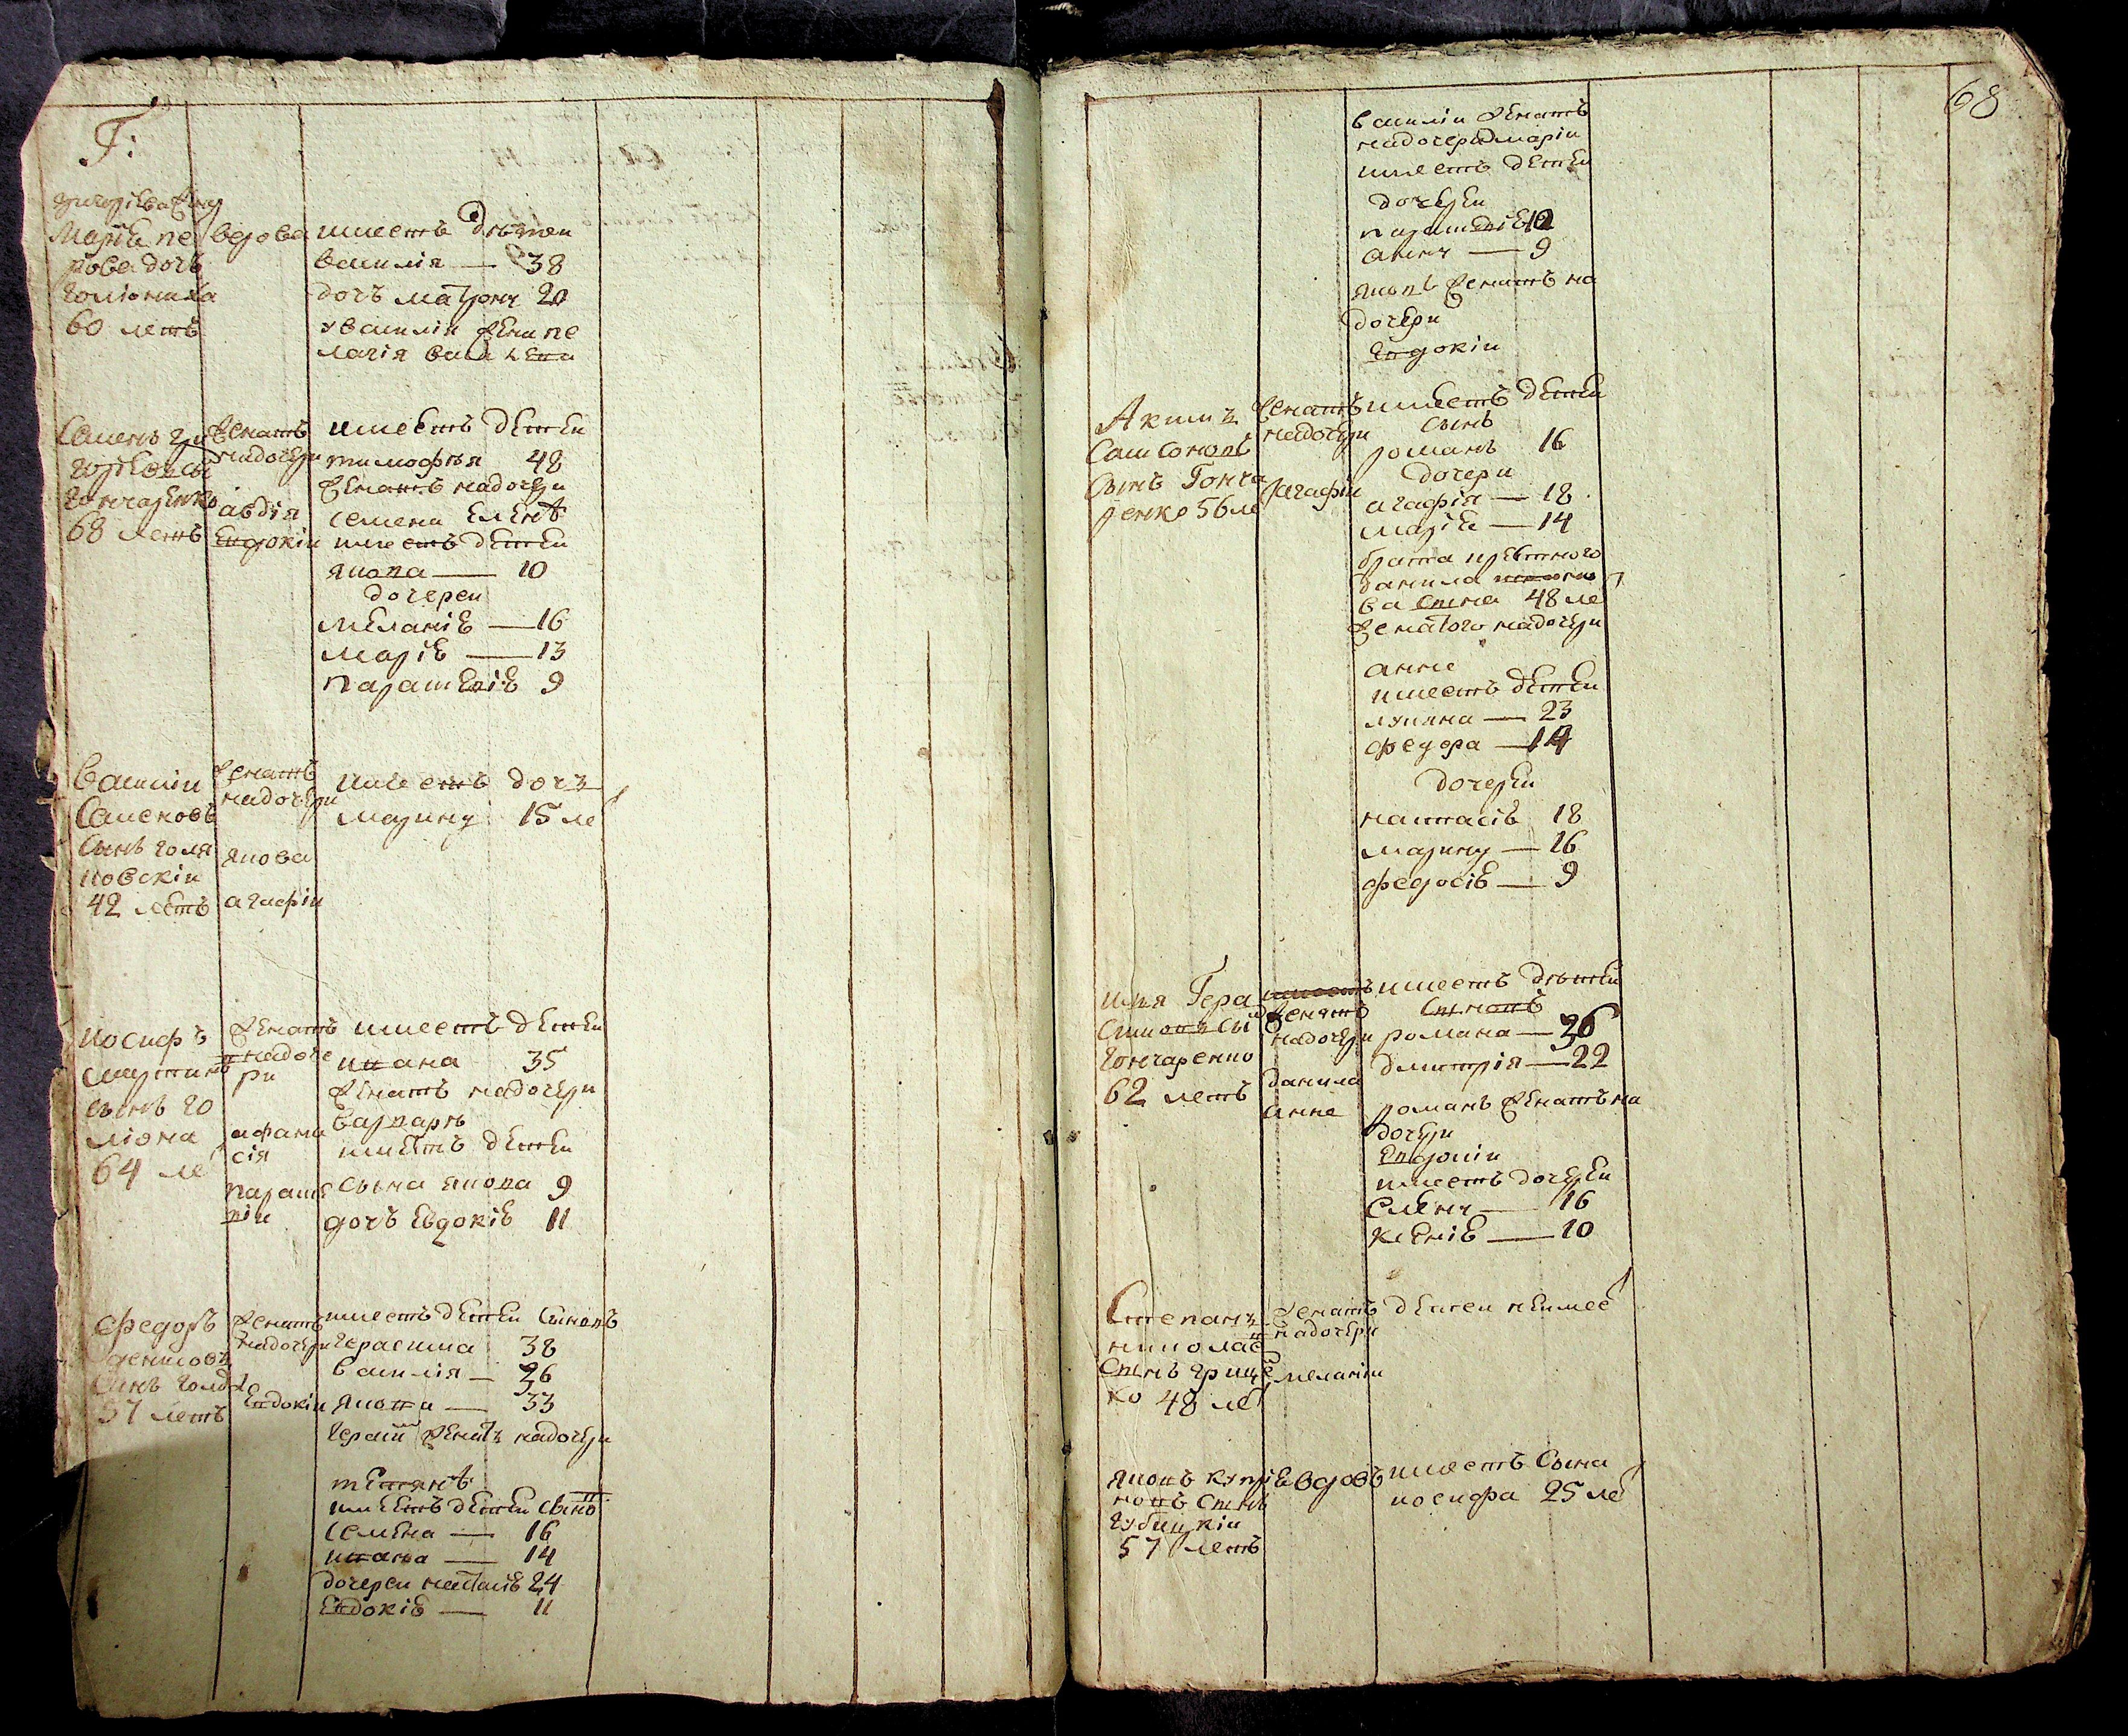 Г:
Марія пе
рова дочь
голіониха
60 летъ
вдова
имеетъ дѣтей
василія — 38
дочь матрону 20
у василія жена пе
лагія
Семенъ гри
горіевъ сы
гончаренко
68 летъ
женатъ
надочери
авдія
Евдокіи
имеетъ детей
тимофѣя 48
женатъ надочери
семена Еленѣ
имеетъ детей
якова — 10
дочерей
меланіе — 16
маріе — 13
параскевіе 9
Василій
Семеновъ
Сынъ голя
ховскій
42 летъ
женатъ
надочери
якова
агафіи
имеетъ дочъ
марину 15 ле
иосифъ
мартинъ
сынъ го
ліона
64 ле
женатъ
надоче
ри
афана
сія
параске
віи
имеетъ детей
ивана 35
женатъ надочери
варварѣ
имеетъ детей
сына якова 9
дочъ Евдокіе 11
Федоръ
денисовъ
Синъ
57 летъ
женатъ
надочери
Евдокіи
имеетъ детей Синовъ
герасима 38
василія — 36
якова — 33
герасим женатъ надочери
тетянѣ
имеетъ детей сыно
семена — 16
ивана — 14
дочерей настасіе 24
Евдокіе — 11
68
василій женатъ
надочери маріи
имеетъ детей
дочерей
параскевіе 12
анну — 9
яковъ женатъ на
дочери
Евдокіи
Акимъ
Самсоновъ
Сынъ Гонча
ренко 56 ле
женатъ
надочери
агафіи
имеетъ детей
сынъ
романъ 16
дочери
агафія — 18
маріе — 14
брата
данила
ва сына 48 ле
женатого надочери
анне
имеетъ детей
лукяна — 23
федора — 14
дочерей
настасіе 18
марину — 16
федосіе — 9
илія Гера
симовъ сы
гончаренко
62 летъ
женатъ
надочери
данила
анне
имеетъ дѣтей
Сыновъ
романа — 26
дмитрія — 22
романъ женатъ на
дочери
Евдокіи
имеетъ дочерей
Елену — 16
ксеніе — 10
Степанъ
николае
Сынъ грице
ко 48 ле
женатъ
надочери
меланіи
детей неимее
яковъ купріе
новъ Сынъ
губицкій
57 летъ
вдовъ
имеетъ Сына
иосифа 25 ле